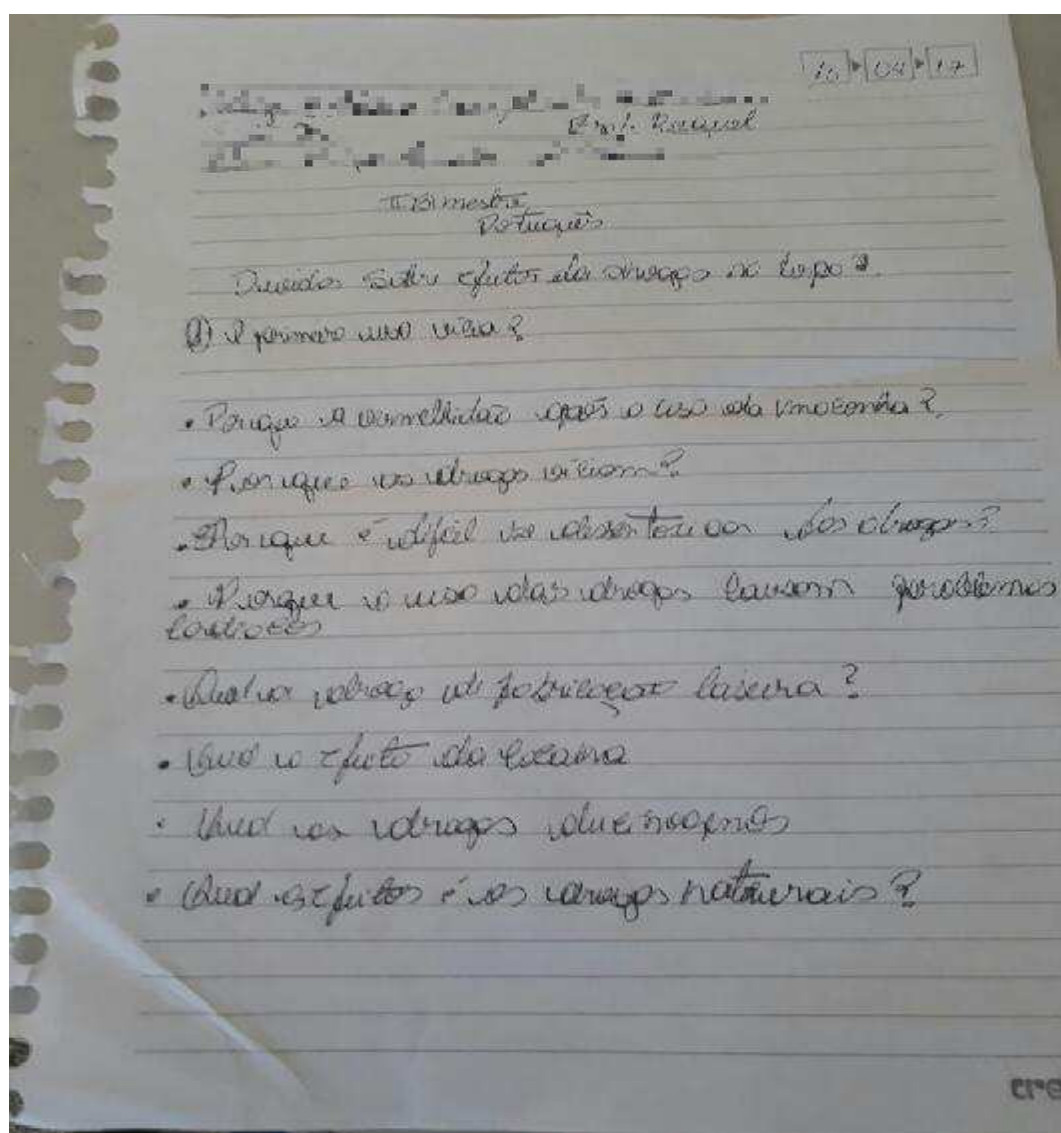 10 04 17
Prof. Raquel
II Bimestre
Portugués
Duvidas Sobre efeitos da drogas no corpo?
O primeiro uso vicia?
• Porque a vermelhidão após o uso da maconha?
• Porque as drogas viciam?
• Porque é difícil se desentoxicar das drogas?
• Porque o uso das drogas causam problemas
• Qual a droga de fabricação caseira?
• Qual o efeito da cocaina
• Qual as drogas
• Qual os efeitos é as drogas naturais?
cre